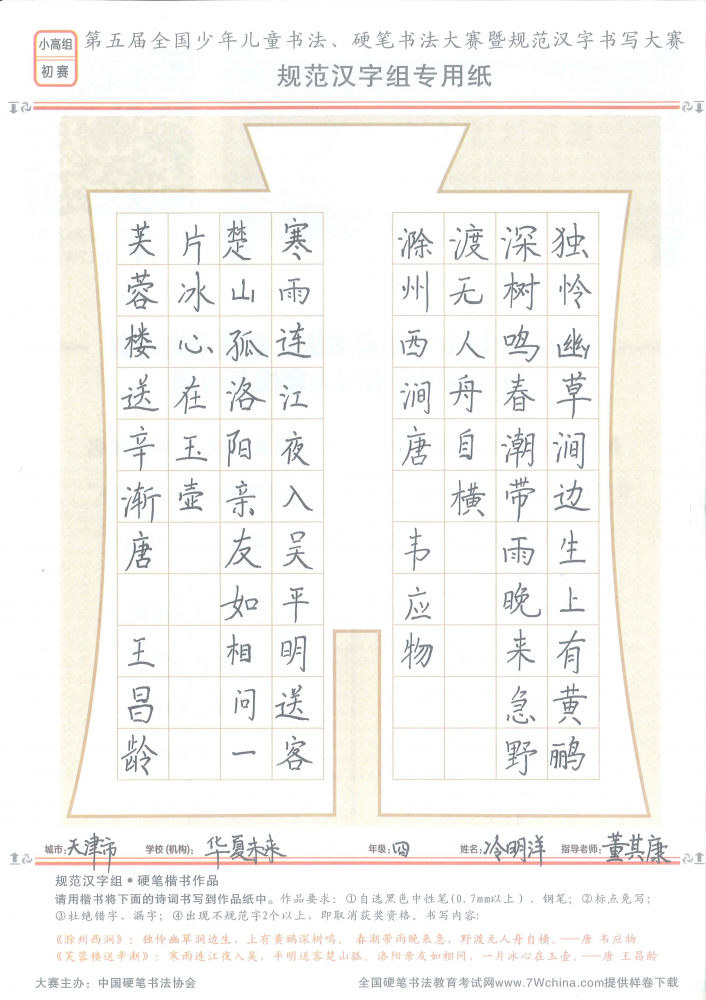 小高组
初赛
第五届全国少年儿童书法、硬笔书法大赛暨规范汉字书写大赛
规范汉字组专用纸
独怜幽草涧边生上有黄鹂
深树鸣春潮带雨晚来急野
渡无人舟自横
滁州西涧唐 韦应物
寒雨连江夜入吴平明送客
楚山孤洛阳亲友如相问一
片冰心在玉壶
芙蓉楼送辛渐唐 王昌龄
城市:天津市 学校(机构):华夏未来 年级:四 姓名:冷明洋 指导老师:董其康
规范汉字组●硬笔楷书作品
请用楷书将下面的诗词书写到作品纸中。作品要求：①自选黑色中性笔(0.7mm以上)、钢笔；②标点免写；
③杜绝错字、漏字；④出现不规范字2个以上，即取消获奖资格。书写内容:
《滁州西涧》：独怜幽草涧边生，上有黄鹂深树鸣。春潮带雨晚来急，野渡无人舟自横。——唐 韦应物
《芙蓉楼送辛渐》：寒雨连江夜入吴，平明送客楚山孤。洛阳亲友如相问，一片冰心在玉壶。——唐 王昌龄
大赛主办：中国硬笔书法协会 全国硬笔书法教育考试网www.7Wchina.com提供样卷下载